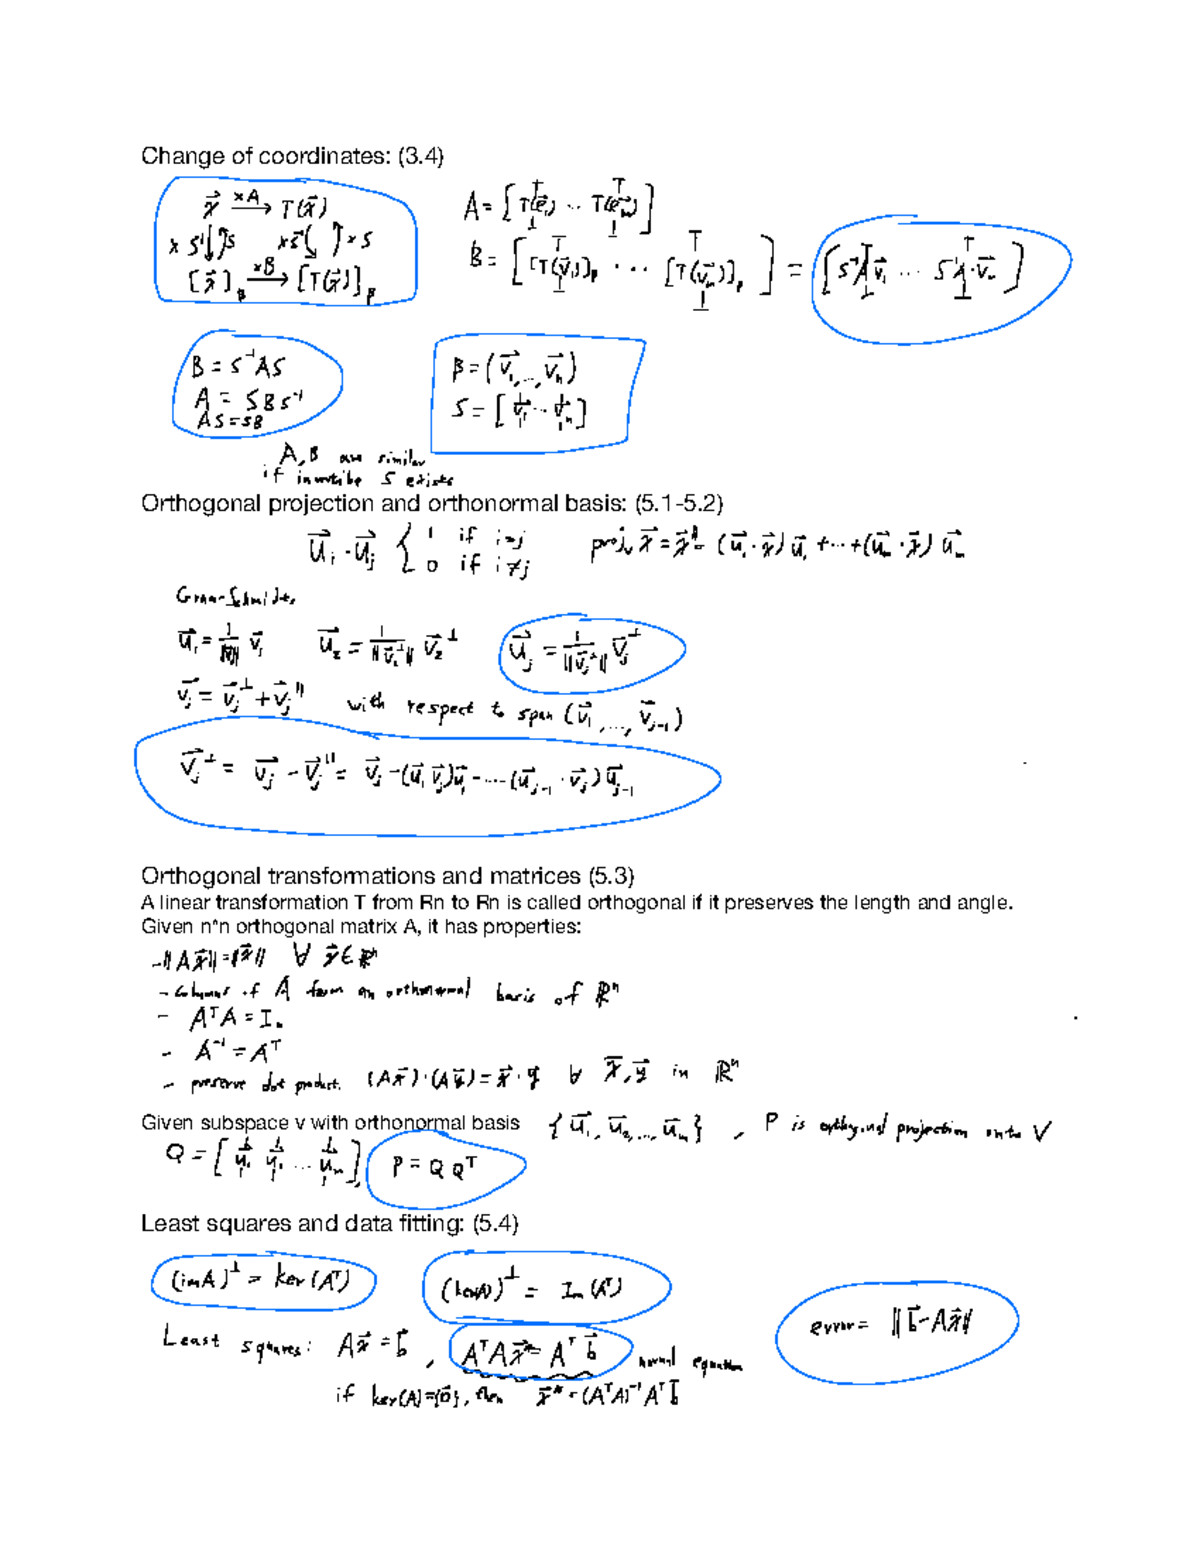 Change of coordinates: (3.4)
x⃗ —×A→ T(x⃗)
× S⁻¹ ↓↑ S   ×S⁻¹ ( ↓ ↑ × S
[x⃗]_β —×B→ [T(x⃗)]_β
A = [T(e⃗₁) ·· T(e⃗ₘ)]
B = [[T(v⃗₁)]_β ··· [T(v⃗ₘ)]_β] = [S⁻¹Av⃗₁ ··· S⁻¹A·v⃗ₘ]
B = S⁻¹AS
A = SBS⁻¹
AS = SB
β = (v⃗₁, ..., v⃗ₙ)
S = [v⃗₁ ·· v⃗ₙ]
A, B are similar
if invertible S exists
Orthogonal projection and orthonormal basis: (5.1-5.2)
u⃗ᵢ · u⃗ⱼ { 1 if i=j
0 if i≠j
projᵥ x⃗ = x⃗^∥ = (u⃗₁·x⃗)u⃗₁ + ··· + (u⃗ₘ·x⃗)u⃗ₘ
Gram-Schmidt,
u⃗₁ = 1/‖v⃗₁‖ v⃗₁   u⃗₂ = 1/‖v⃗₂^⊥‖ v⃗₂^⊥   u⃗ⱼ = 1/‖v⃗ⱼ^⊥‖ v⃗ⱼ^⊥
v⃗ⱼ = v⃗ⱼ^⊥ + v⃗ⱼ^∥   with respect to span (v⃗₁, ..., v⃗ⱼ₋₁)
v⃗ⱼ^⊥ = v⃗ⱼ - v⃗ⱼ^∥ = v⃗ⱼ - (u⃗₁ v⃗ⱼ)u⃗₁ - ··· (u⃗ⱼ₋₁ · v⃗ⱼ) u⃗ⱼ₋₁
Orthogonal transformations and matrices (5.3)
A linear transformation T from Rn to Rn is called orthogonal if it preserves the length and angle.
Given n*n orthogonal matrix A, it has properties:
- ‖Ax⃗‖ = ‖x⃗‖ ∀ x⃗ ∈ ℝⁿ
- columns of A form an orthonormal basis of ℝⁿ
- AᵀA = Iₙ
- A⁻¹ = Aᵀ
- preserve dot product. (Ax⃗)·(Ay⃗) = x⃗·y⃗ ∀ x⃗, y⃗ in ℝⁿ
Given subspace v with orthonormal basis {u⃗₁, u⃗₂, ..., u⃗ₘ}, P is orthogonal projection onto V
Q = [u⃗₁ u⃗₂ ... u⃗ₘ], P = QQᵀ
Least squares and data fitting: (5.4)
(imA)^⊥ = ker(Aᵀ)   (kerA)^⊥ = Im(Aᵀ)
error = ‖b⃗ - Ax⃗‖
Least squares: Ax⃗ = b⃗, AᵀAx⃗* = Aᵀb⃗ normal equation
if ker(A) = {0⃗}, then x⃗* = (AᵀA)⁻¹Aᵀb⃗